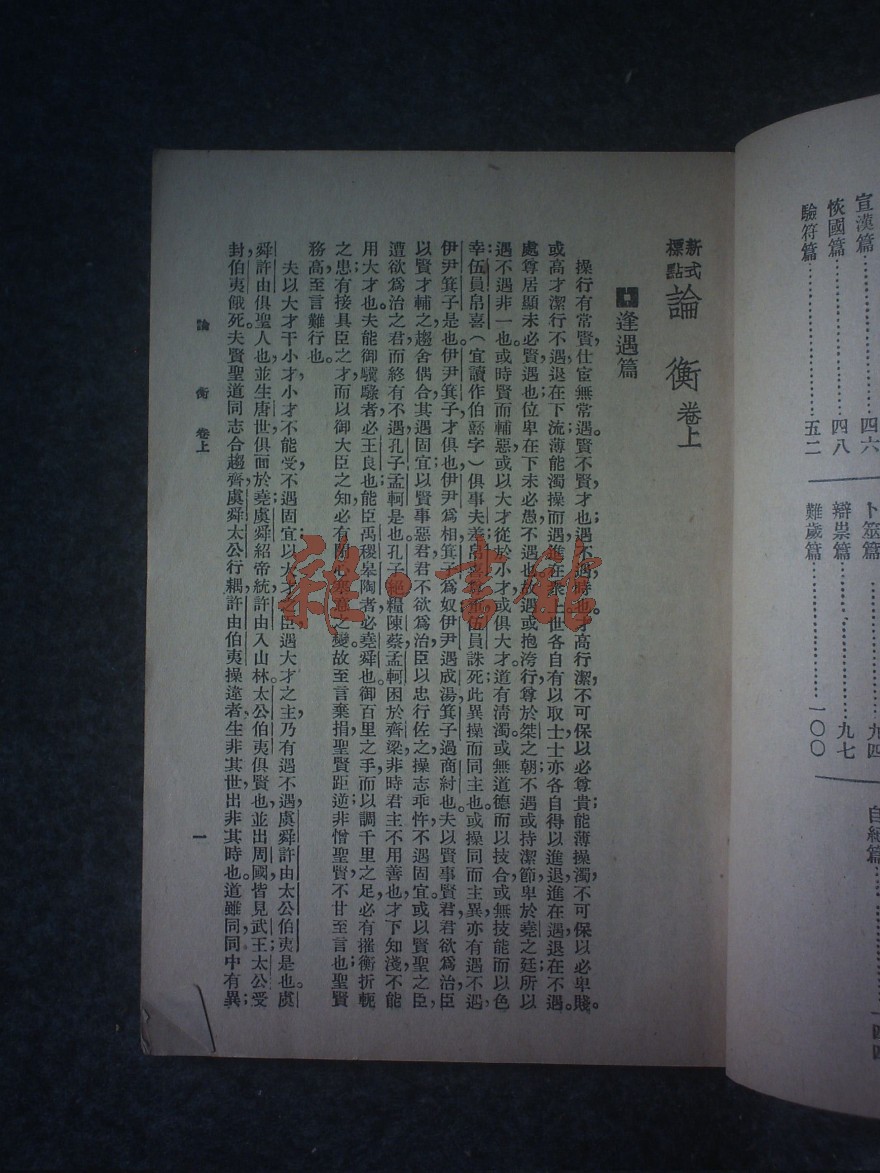 宣漢篇……四六
恢國篇……四八
驗符篇……五二
卜筮篇……九四
辯祟篇……九七
難歲篇……一〇〇
自紀篇
新式標點 論衡 卷上
逢遇篇
操行有常賢，仕宦無常遇。賢不賢，才也；遇不遇，時也。才高行潔，不可保以必尊貴；能薄操濁，不可保以必卑賤。
或高才潔行，不遇，退在下流；薄能濁操，而遇，進在衆上。世各自有以取士，士亦各自得以進。進在遇，退在不遇。
處尊居顯未必賢，遇也；位卑在下未必愚，不遇也。故遇或抱洿行，尊於桀之朝；不遇或持潔節，卑於堯之廷。所以
遇不遇非一也。或時賢而輔惡；或以大才從於小才；或俱大才，道有清濁；或無道德而以技合；或無技能而以色
幸。伍員帛喜（宜讀作伯嚭字）俱事夫差，帛喜尊重，伍員誅死，此異操而同主也。或操同而主異，亦有遇不遇，
伊尹箕子是也。伊尹箕子，才俱也，伊尹爲相，箕子爲奴；伊尹遇成湯，箕子遇商紂也。夫以賢事賢君，君欲爲治，臣
以賢才輔之，趨舍偶合，其遇固宜；以賢事惡君，君不欲爲治，臣以忠行佐之，操志乖忤，不遇固宜。或以賢聖之臣，
遭欲爲治之君，而終有不遇，孔子孟軻是也。孔子絕糧陳蔡，孟軻困於齊梁，非時君主不用善也，才下知淺，不能
用大才也。夫能御驥騄者，必王良也；能臣禹稷皋陶者，必堯舜也。御百里之手，而以調千里之足，必有摧衡折軛
之患；有接具臣之才，而以御大臣之知，必有閉心塞意之變。故至言棄捐，聖賢距逆；非憎聖賢，不甘至言也；聖賢
務高，至言難行也。
夫以大才干小才，小才不能受，不遇固宜；以大才之臣，遇大才之主，乃有遇不遇，虞舜許由太公伯夷是也。虞
舜許由俱聖人也，並生唐世，俱面於堯；虞舜紹帝統，許由入山林。太公伯夷俱賢也，並出周國，皆見武王；太公受
封，伯夷餓死。夫賢聖道同，志合，趨齊，虞舜太公行耦，許由伯夷操違者，生非其世，出非其時也。道雖同，同中有異；
論衡 卷上
一
雜·書館